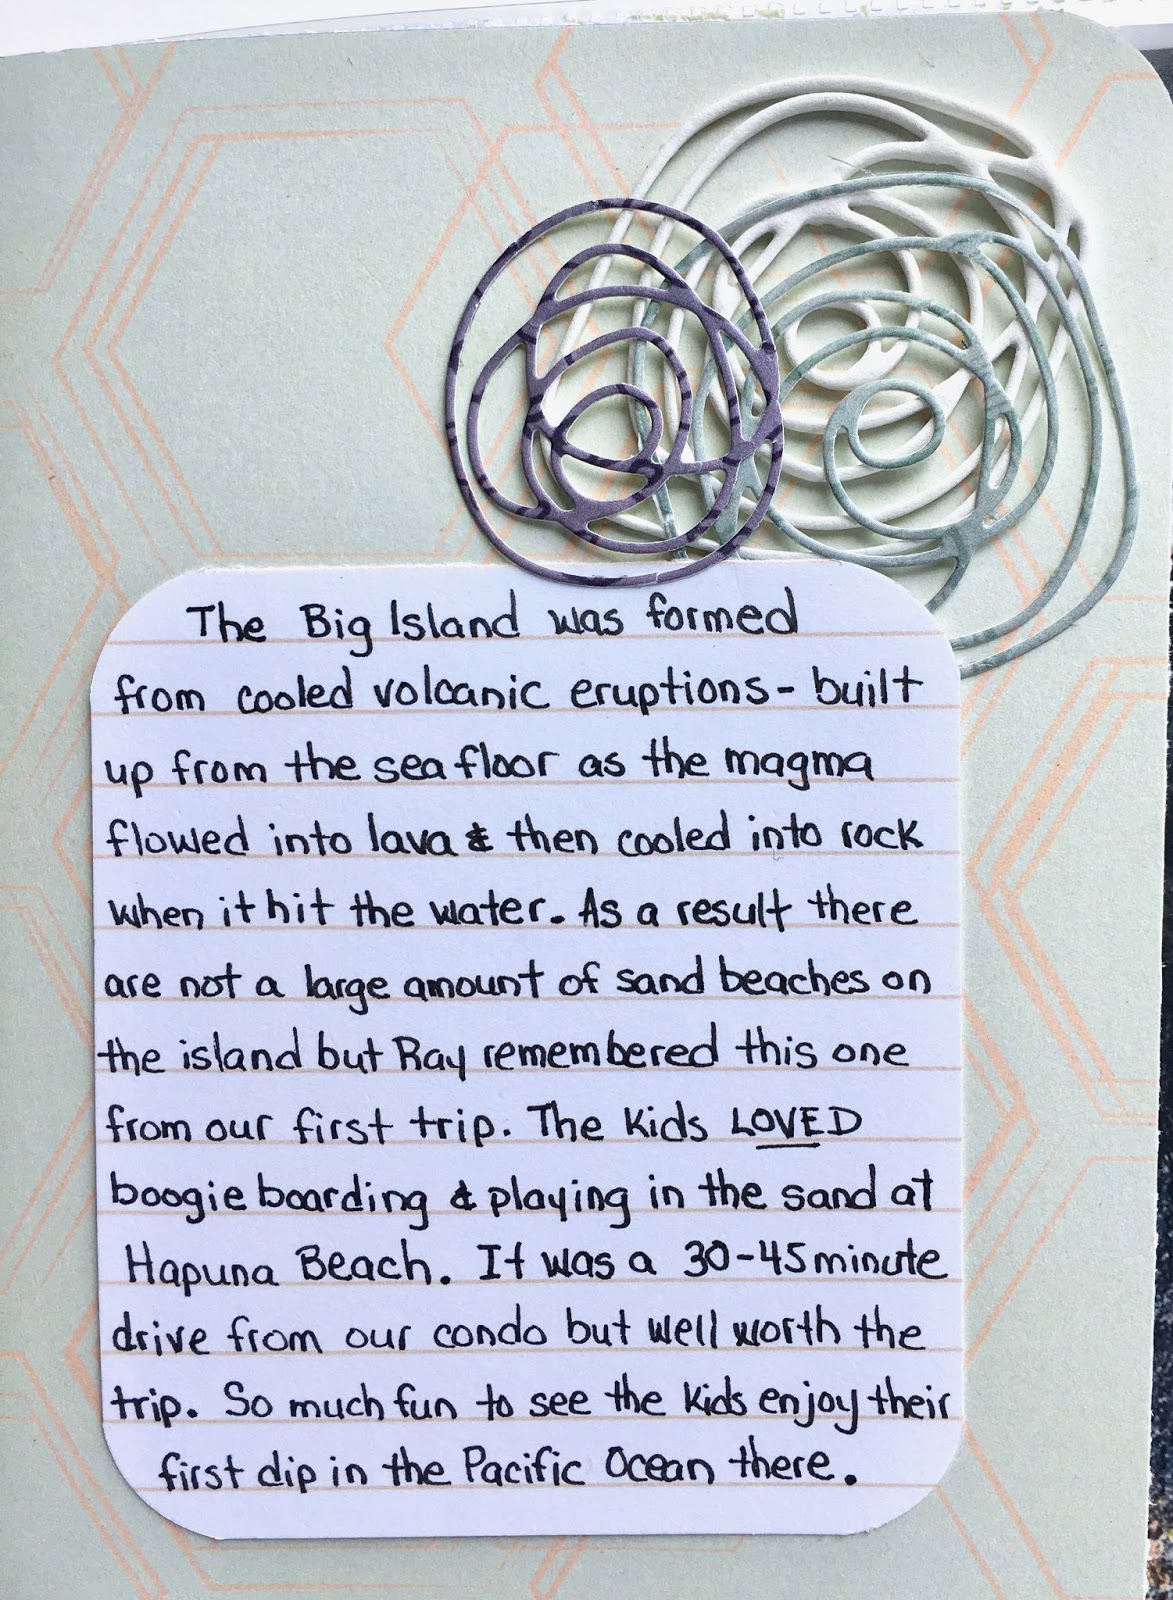 The Big Island was formed
from cooled volcanic eruptions - built
up from the sea floor as the magma
flowed into lava & then cooled into rock
when it hit the water. As a result there
are not a large amount of sand beaches on
the island but Ray remembered this one
from our first trip. The kids LOVED
boogie boarding & playing in the sand at
Hapuna Beach. It was a 30-45 minute
drive from our condo but well worth the
trip. So much fun to see the kids enjoy their
first dip in the Pacific Ocean there.